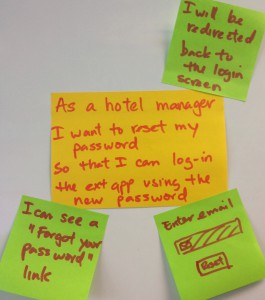 I will be
redirected
back to
the login
screen
As a hotel manager
I want to reset my
password
So that I can log-in
the ext app using the
new password
I can see a
"Forgot your
password"
link
Enter email
Reset